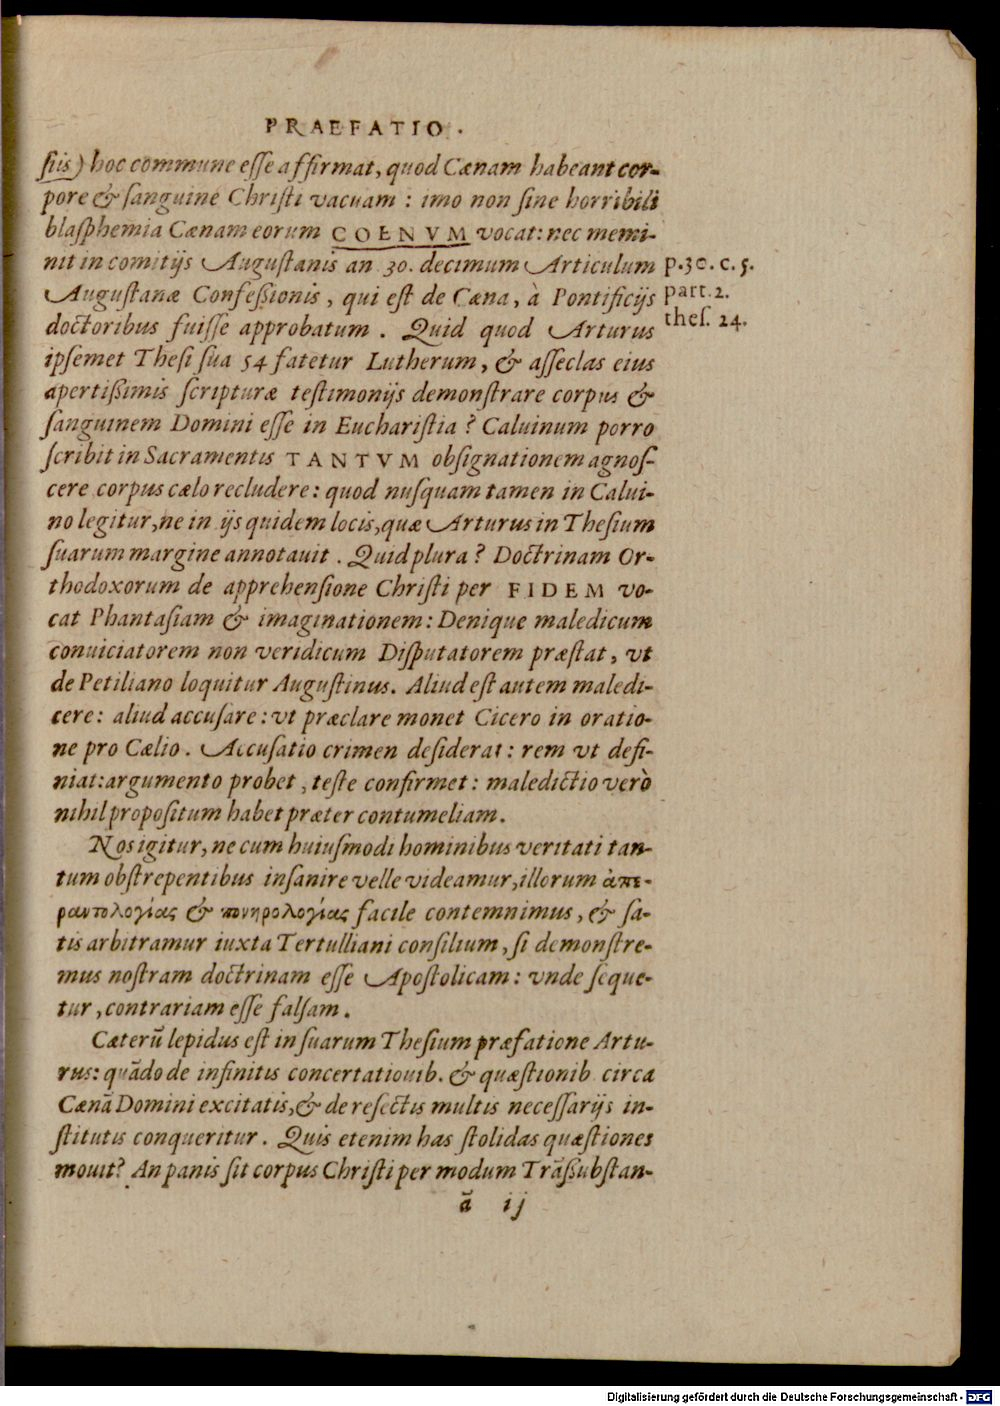 PRAEFATIO.
ſiis) hoc commune eſſe affirmat, quod Cænam habeant cor-
pore & ſanguine Chriſti vacuam : imo non ſine horribili
blaſphemia Cænam eorum COENVM vocat: nec memi-
nit in comitijs Auguſtanis an 30. decimum Articulum
p.30. c. 5.
Auguſtanæ Confeſsionis, qui eſt de Cæna, à Pontificijs
part.2.
doctoribus fuiſſe approbatum. Quid quod Arturus
theſ. 24.
ipſemet Theſi ſua 54 fatetur Lutherum, & aſſeclas eius
apertißimis ſcripturæ teſtimonijs demonſtrare corpus &
ſanguinem Domini eſſe in Euchariſtia? Caluinum porro
ſcribit in Sacramentis TANTVM obſignationem agnoſ-
cere corpus cælo recludere: quod nuſquam tamen in Calui-
no legitur, ne in ijs quidem locis, quæ Arturus in Theſium
ſuarum margine annotauit. Quid plura? Doctrinam Or-
thodoxorum de apprehenſione Chriſti per FIDEM vo-
cat Phantaſiam & imaginationem: Denique maledicum
conuiciatorem non veridicum Diſputatorem præſtat, vt
de Petiliano loquitur Auguſtinus. Aliud eſt autem maledi-
cere: aliud accuſare: vt præclare monet Cicero in oratio-
ne pro Cælio. Accuſatio crimen deſiderat: rem vt defi-
niat: argumento probet, teſte confirmet: maledictio verò
nihil propoſitum habet præter contumeliam.
Nos igitur, ne cum huiuſmodi hominibus veritati tan-
tum obſtrepentibus inſanire velle videamur, illorum ἀπε-
ραντολογίας & πονηρολογίας facile contemnimus, & ſa-
tis arbitramur iuxta Tertulliani conſilium, ſi demonſtre-
mus noſtram doctrinam eſſe Apoſtolicam: vnde ſeque-
tur, contrariam eſſe falſam.
Cæterũ lepidus eſt in ſuarum Theſium præfatione Artu-
rus: quãdo de infinitis concertationib. & quæſtionib circa
Cænã Domini excitatis, & de reſectis multis neceſſarijs in-
ſtitutis conqueritur. Quis etenim has ſtolidas quæſtiones
mouit? An panis ſit corpus Chriſti per modum Trãſſubſtan-
ã ij
Digitalisierung gefördert durch die Deutsche Forschungsgemeinschaft - DFG